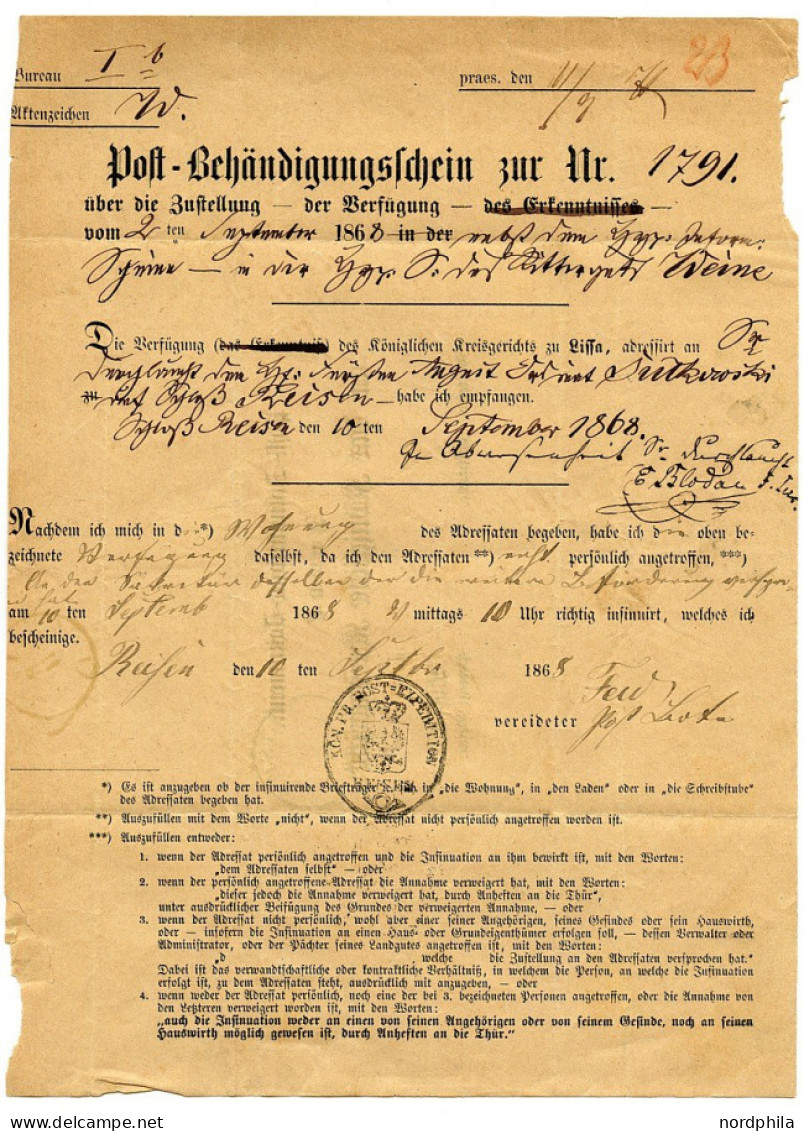 Bureau I b praes. den 11/9 23
Aktenzeichen
Post-Behändigungsschein zur Nr. 1791.
über die Zustellung — der Verfügung — des Erkenntnisses —
vom 2 ten September 1868 in der nebst dem Hyp:
Scheine — in der Hyp. S. des Ritterguts Weine
Die Verfügung (das Erkenntniß) des Königlichen Kreisgerichts zu Lissa, adressirt an Sr
Durchlaucht den Hr: Fürsten August Sulkowski
zu auf Schloß Reisen — habe ich empfangen.
Schloß Reisen den 10 ten September 1868.
In Abwesenheit Sr. Durchlaucht
Nachdem ich mich in d ie *) Wohnung des Adressaten begeben, habe ich die oben be-
zeichnete Verfügung daselbst, da ich den Adressaten **) nicht persönlich angetroffen, ***)
An den Sekretair desselben der die weitere Beförderung
am 10 ten Septemb 1868 mittags 10 Uhr richtig insinuirt, welches ich
bescheinige.
Reisen den 10 ten Septbr 1868
vereideter Post Bote
KÖN. PR. POST-EXPEDITION
REISEN
*) Es ist anzugeben ob der insinuirende Briefträger ꝛc. sich in „die Wohnung", in „den Laden" oder in „die Schreibstube"
des Adressaten begeben hat.
**) Auszufüllen mit dem Worte „nicht", wenn der Adressat nicht persönlich angetroffen worden ist.
***) Auszufüllen entweder:
1. wenn der Adressat persönlich angetroffen und die Insinuation an ihm bewirkt ist, mit den Worten:
„dem Adressaten selbst" — oder
2. wenn der persönlich angetroffene Adressat die Annahme verweigert hat, mit den Worten:
„dieser jedoch die Annahme verweigert hat, durch Anheften an die Thür",
unter ausdrücklicher Beifügung des Grundes der verweigerten Annahme, — oder
3. wenn der Adressat nicht persönlich, wohl aber einer seiner Angehörigen, seines Gesindes oder sein Hauswirth,
oder — insofern die Insinuation an einen Haus- oder Grundeigenthümer erfolgen soll, — dessen Verwalter oder
Administrator, oder der Pächter seines Landgutes angetroffen ist, mit den Worten:
„d , welche die Zustellung an den Adressaten versprochen hat."
Dabei ist das verwandtschaftliche oder kontraktliche Verhältniß, in welchem die Person, an welche die Insinuation
erfolgt ist, zu dem Adressaten steht, ausdrücklich mit anzugeben, — oder
4. wenn weder der Adressat persönlich, noch eine der bei 3. bezeichneten Personen angetroffen, oder die Annahme von
den Letzteren verweigert worden ist, mit den Worten:
„auch die Insinuation weder an einen von seinen Angehörigen oder von seinem Gesinde, noch an seinen
Hauswirth möglich gewesen ist, durch Anheften an die Thür."
NORDPHILA